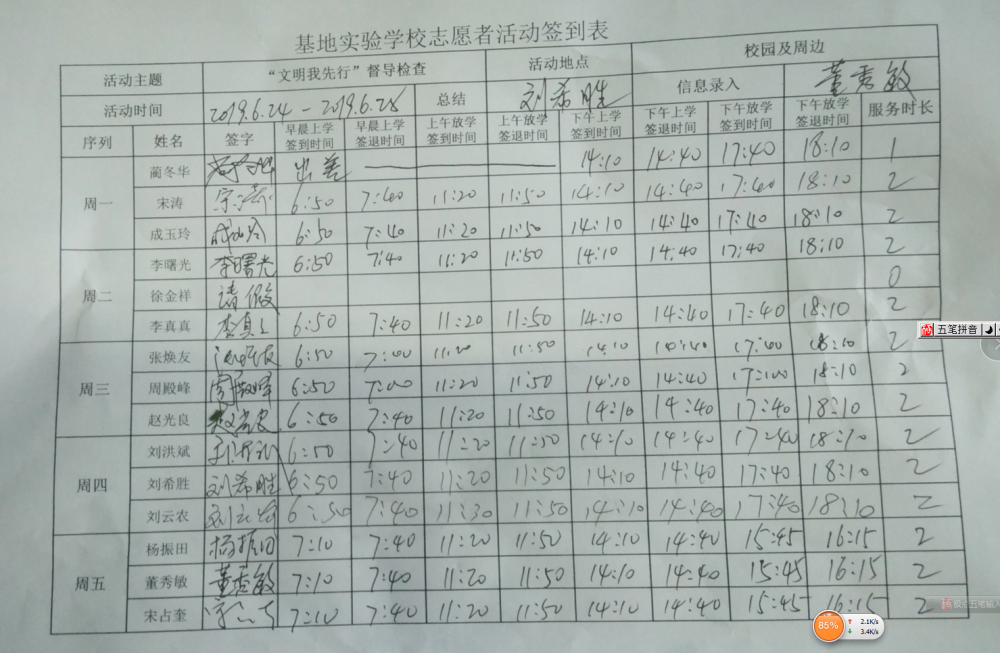 基地实验学校志愿者活动签到表
活动主题 “文明我先行”督导检查 活动地点 校园及周边
活动时间 2019.6.24-2019.6.28 总结 刘希胜 信息录入 董秀敏
序列 姓名 签字 早晨上学签到时间 早晨上学签退时间 上午放学签到时间 上午放学签退时间 下午上学签到时间 下午上学签退时间 下午放学签到时间 下午放学签退时间 服务时长
周一 蔺冬华 出差 14:10 14:40 17:40 18:10 1
宋涛 宋涛 6:50 7:40 11:20 11:50 14:10 14:40 17:40 18:10 2
成玉玲 成玉玲 6:50 7:40 11:20 11:50 14:10 14:40 17:40 18:10 2
周二 李曙光 李曙光 6:50 7:40 11:20 11:50 14:10 14:40 17:40 18:10 2
徐金祥 请假 0
李真真 李真真 6:50 7:40 11:20 11:50 14:10 14:40 17:40 18:10 2
周三 张焕友 6:50 11:20 11:50 14:10 14:40 17:40 18:10 2
周殿峰 周殿峰 6:50 11:20 11:50 14:10 14:40 18:10 2
赵光良 赵光良 6:50 7:40 11:20 11:50 14:10 14:40 17:40 18:10 2
周四 刘洪斌 6:50 7:40 11:20 11:50 14:10 14:40 17:40 18:10 2
刘希胜 刘希胜 6:50 7:40 11:20 11:50 14:10 14:40 17:40 18:10 2
刘云农 刘云农 6:50 7:40 11:30 11:50 14:10 14:40 17:40 18:10 2
周五 杨振田 杨振田 7:10 7:40 11:20 11:50 14:10 14:40 15:45 16:15 2
董秀敏 董秀敏 7:10 7:40 11:20 11:50 14:10 14:40 15:45 16:15 2
宋占奎 7:10 7:40 11:20 11:50 14:10 14:40 15:45 16:15 2
五笔拼音
85% 2.1K/s
3.4K/s